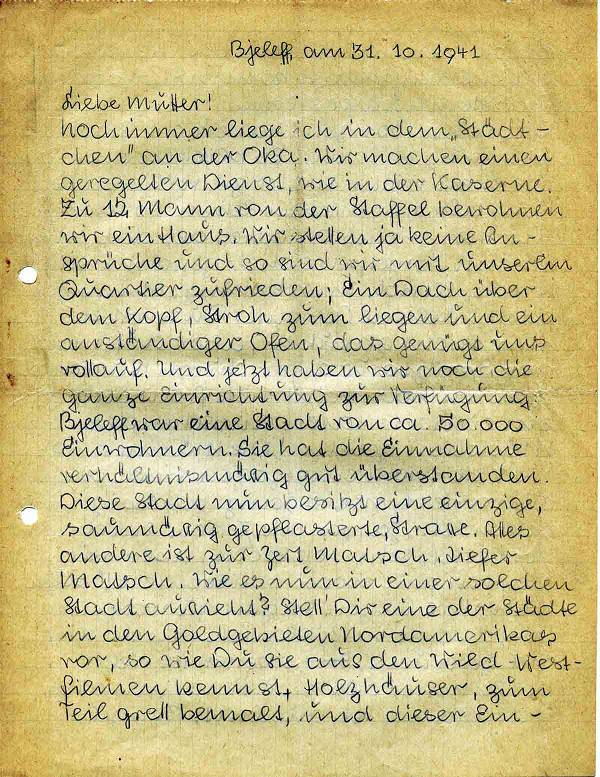 Bjeleff, am 31. 10. 1941
Liebe Mutter!
Noch immer liege ich in dem „Städt-
chen" an der Oka. Wir machen einen
geregelten Dienst, wie in der Kaserne.
Zu 12 Mann von der Staffel bewohnen
wir ein Haus. Wir stellen ja keine An-
sprüche und so sind wir mit unserem
Quartier zufrieden; Ein Dach über
dem Kopf, Stroh zum liegen und ein
anständiger Ofen, das genügt uns
vollauf. Und jetzt haben wir noch die
ganze Einrichtung zur Verfügung.
Bjeleff war eine Stadt von ca. 50.000
Einwohnern. Sie hat die Einnahme
verhältnismäßig gut überstanden.
Diese Stadt nun besitzt eine einzige,
saumäßig gepflasterte, Straße. Alles
andere ist zur Zeit Matsch, tiefer
Matsch. Wie es nun in einer solchen
Stadt aussieht? Stell' Dir eine der Städte
in den Goldgebieten Nordamerikas
vor, so wie Du sie aus den Wild-West-
filmen kennst, Holzhäuser, zum
Teil grell bemalt, und dieser Ein-